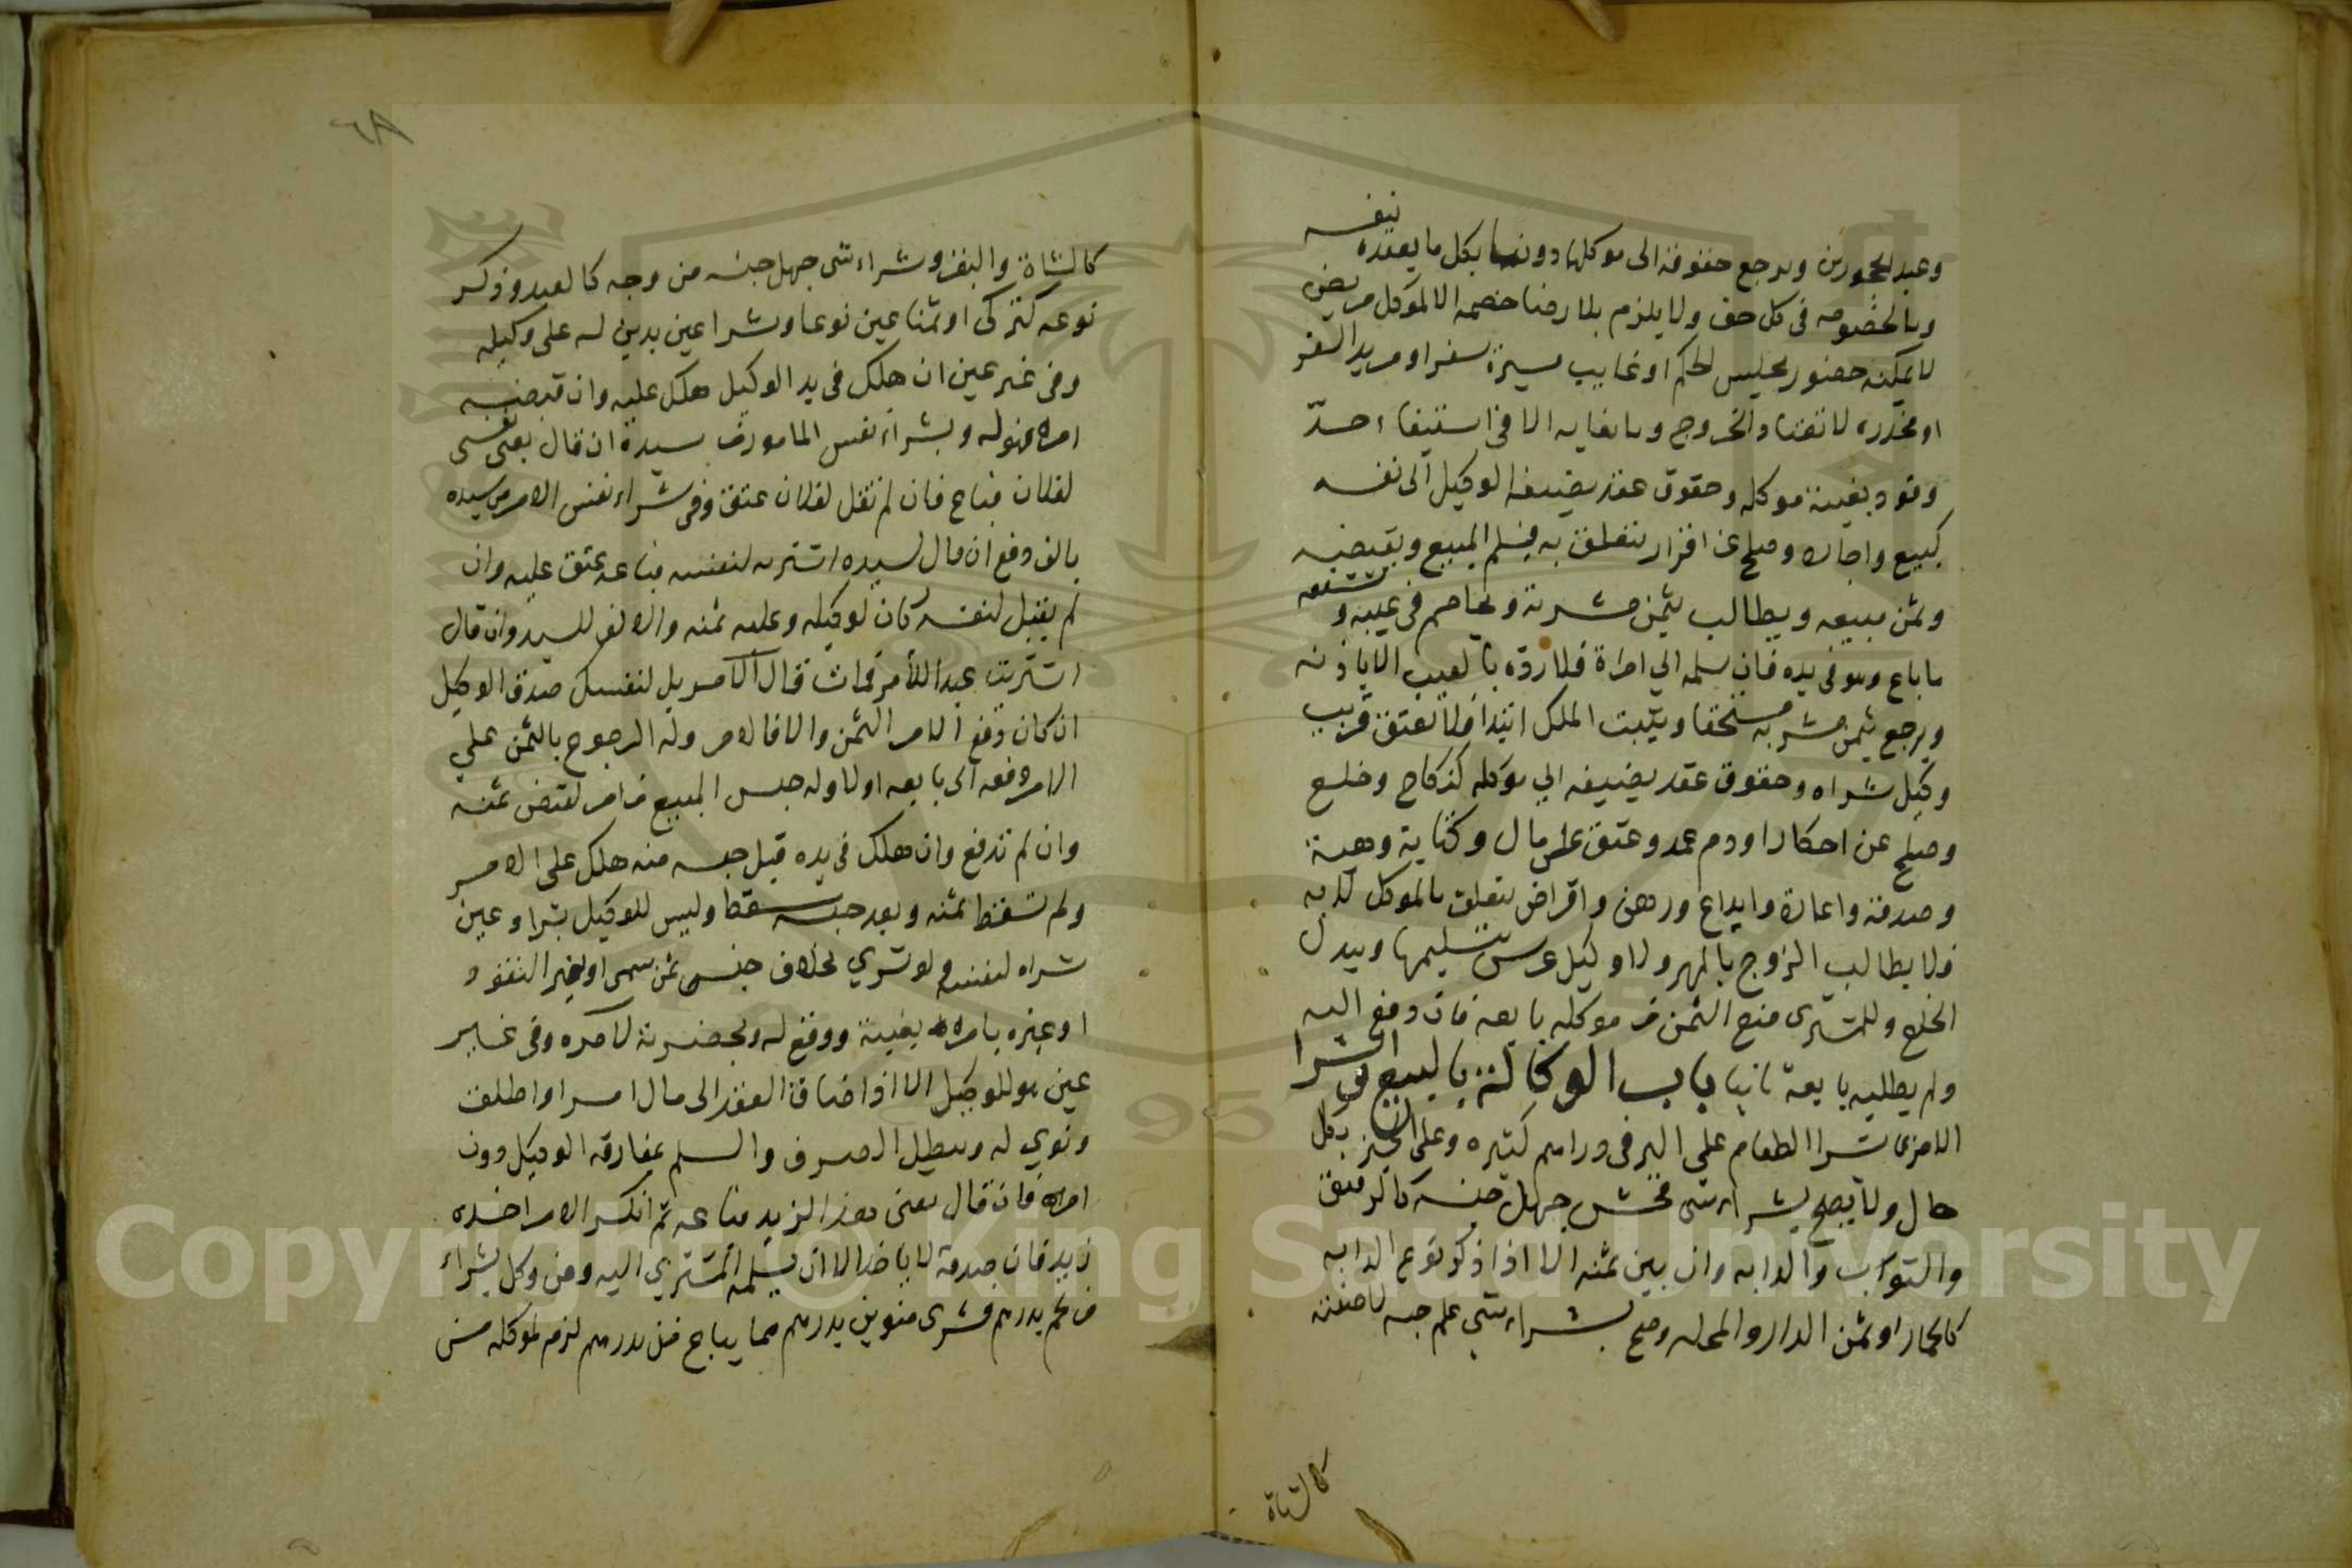 وعبد محجورين وترجع حقوقه الى موكلها دونهما بكل ما يعقده بنفسه
وبالخصومه فى كل حق ولا يلزم بلا رضا خصمه الا لموكل مريض
لا يمكنه حضور مجلس الحكم او غايب مسيرة سفر او مريد السفر
او مخدره لا تعتاد الخروج وبايفايه الا فى استيفاء حدّ
وقود بغيبة موكله وحقوق عقد يضيفه الوكيل الى نفسه
كبيع واجاره وصلح عن اقرار يتعلق به فيسلم المبيع ويقبضه
وثمن مبيعه ويطالب بثمن مشريه ويخاصم فى عيبه وشفعه
ما باع وهو فى يده فان سلمه الي امره فلا رده بالعيب الا باذنه
ويرجع بثمن مشريه مستحقا ويثبت الملك ابتدا فلا يعتق قريب
وكيل شراه وحقوق عقد يضيفه الي موكله كنكاح وخلع
وصلح عن انكار او دم عمد وعتق على مال وكتابة وهبة
وصدقة واعارة وايداع ورهن واقراض يتعلق بالموكل لا به
فلا يطالب الزوج بالمهر ولا وكيل عرس بتسليمها وببدل
الخلع وللمشترى منع الثمن من موكله بايعه فان دفع اليه
ولم يطلبه بايعه ثانيا باب الوكالة بالبيع والشرا
الامر شرا الطعام على البر فى دراهم كثيره وعلى الخبز بكل
حال ولا يصح بشراء شى فحش جهل جنسه كالرقيق
والثوب والدابه وان بين ثمنه الا اذا ذكر نوع الدابه
كالحمار او ثمن الدار والمحله وصح بشراء شي علم جنسه لا صفته
كالشاة
٦٨
كالشاة والبقر وشراء شى جهل جنسه من وجه كالعبد وذكر
نوعه كتركى او ثمنا عين نوعا وشرا عين بدين له على وكيله
وفى غير عين ان هلك فى يد الوكيل هلك عليه وان قبضه
امره فهو له وبشراء نفس المامور من سيده ان قال بعنى نفسى
لفلان فباع فان لم تقل لفلان عتق وفى شراء نفس الامر من سيده
بالف دفع ان قال لسيده اشتريه لنفسه فباعه عتق عليه وان
لم يقبل لنفسه كان لوكيله وعليه ثمنه والالف للسيد وان قال
اشتريت عبدا للأمر فمات قال الامر بل لنفسك صدق الوكيل
ان كان دفع الامر الثمن والا فالامر وله الرجوع بالثمن علي
الامر دفعه الى بايعه اولا وله حبس المبيع من امره لقبض ثمنه
وان لم تدفع وان هلك فى يده قبل حبسه منه هلك على الامر
ولم تسقط ثمنه وبعد حبسه سقط وليس للوكيل بشراء عين
شراه لنفسه ولو شري بخلاف جنس ثمن سمى او بغير النقود
او غيره بامره بغيبة ووقع له وبحضرته لآمره وفى غير
عين هو للوكيل الا اذا اضاف العقد الى مال امره او اطلق
ونوي له ويبطل الصرف والسلم بمفارقه الوكيل دون
امره فان قال بعنى هذا لزيد فباعه ثم انكر الامر اخذه
زيد فان صدقه لا ياخذ الا ان يسلمه المشتري اليه ومن وكل بشراء
من لحم بدرهم فشرى منوين بدرهم مما يباع من بدرهم لزم موكله من